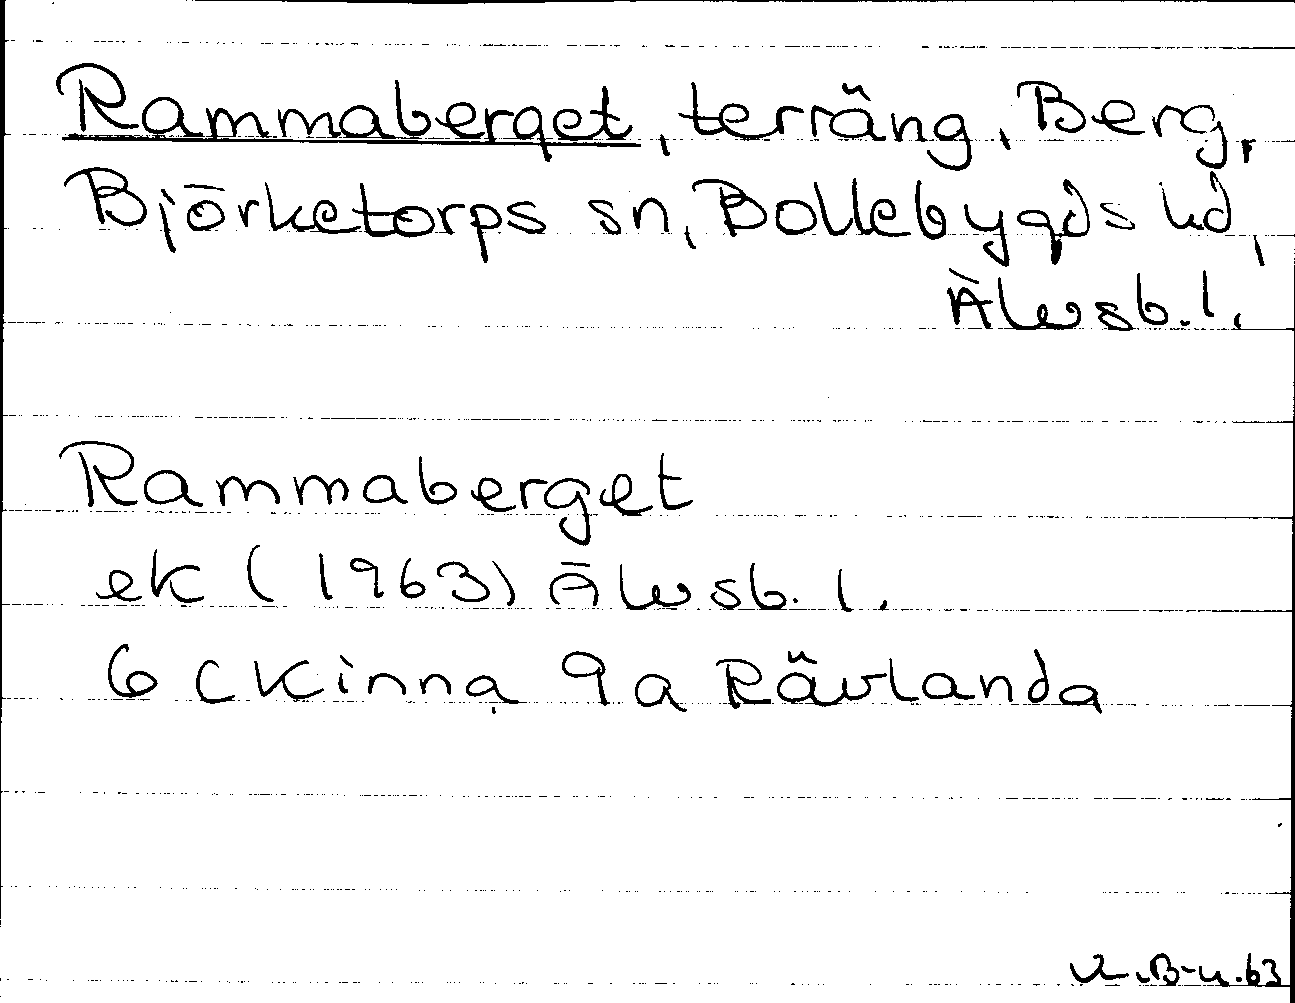 Rammaberget, terräng, Berg,
Björketorps sn, Bollebygds hd,
Älvsb. l.
Rammaberget
ek (1963) Älvsb. l.
6 C Kinna 9 a Rävlanda